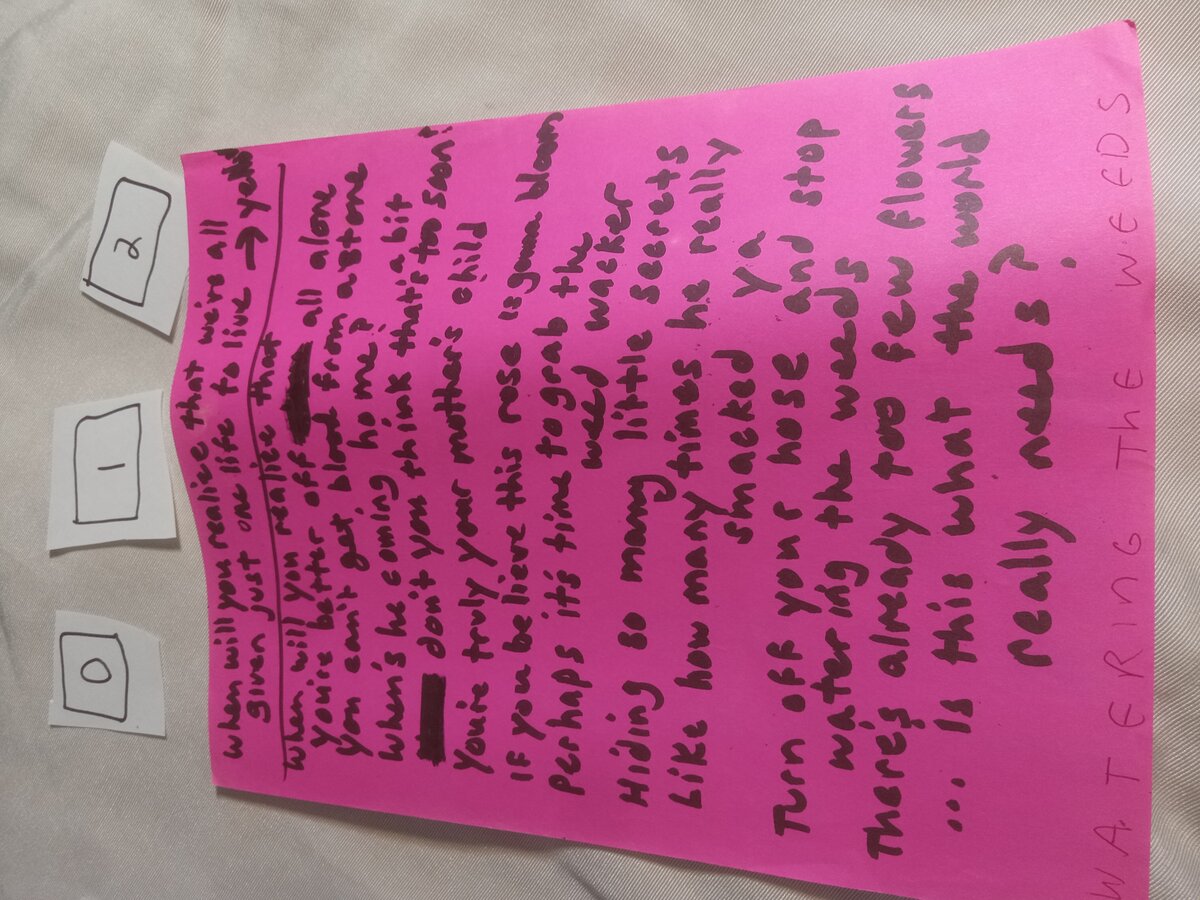 0 1 2
When will you realize that we're all
given just one life to live → yello
When will you realize that
You're better off all alone
You can't get blood from a stone
When's he coming home?
don't you think that's a bit too soon?
You're truly your mother's child
If you believe this rose is gonna bloom
Perhaps it's time to grab the
weed wacker
Hiding so many little secrets
Like how many times he really
smacked ya
Turn off your hose and stop
watering the weeds
There's already too few flowers
... Is this what the world
really needs?
WATERING THE WEEDS